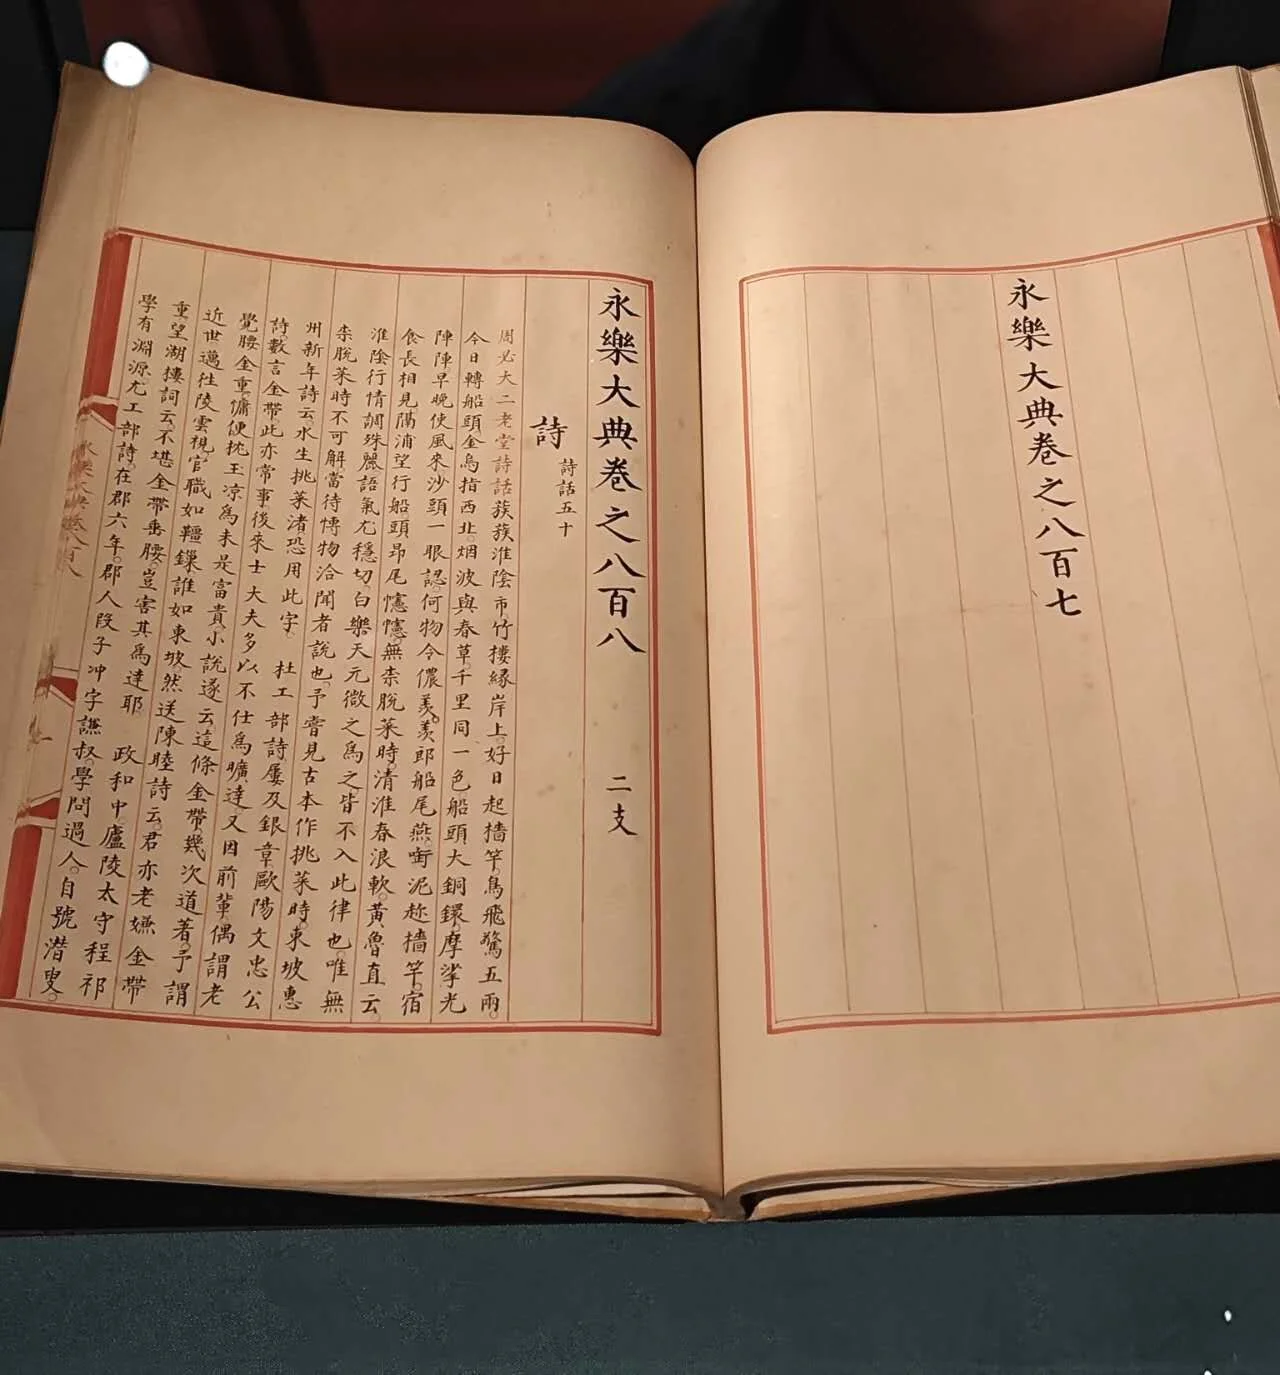 永樂大典卷之八百七
永樂大典卷之八百八 二支
詩 詩話五十
周必大二老堂詩話蔟蔟淮陰市。竹樓緣岸上。好日起檣竿。烏飛驚五兩。
今日轉船頭。金烏指西北。烟波與春草。千里同一色。船頭大銅鐶。摩挲光
陣陣。早晚使風來。沙頭一眼認。何物令儂羡。羡郎船尾燕。銜泥趂檣竿。宿
食長相見。隔浦望行船。頭昂尾幰幰。無柰脫菜時。清淮春浪軟。黄魯直云。
淮陰行情調殊麗。語氣尤穩切。白樂天元微之為之。皆不入此律也。唯無
柰脫菜時不可解。當待愽物洽聞者說也。予嘗見古本作挑菜時。東坡惠
州新年詩云。水生挑菜渚。恐用此字。 杜工部詩屢及銀章。歐陽文忠公
詩。數言金帶。此亦常事。後來士大夫多以不仕為曠達。又因前軰偶謂老
覺腰金重。慵便枕玉凉。為未是富貴。小說遂云這條金帶。幾次道著。予謂
近世邁往陵雲。視官職如韁鏁。誰如東坡。然送陳睦詩云。君亦老嫌金帶
重。望湖樓詞云。不堪金帶垂腰。豈害其為達耶。 政和中。廬陵太守程祁
學有淵源。尤工部詩。在郡六年。郡人段子冲字謙叔。學問過人。自號潛叟。
永樂大典卷八百八